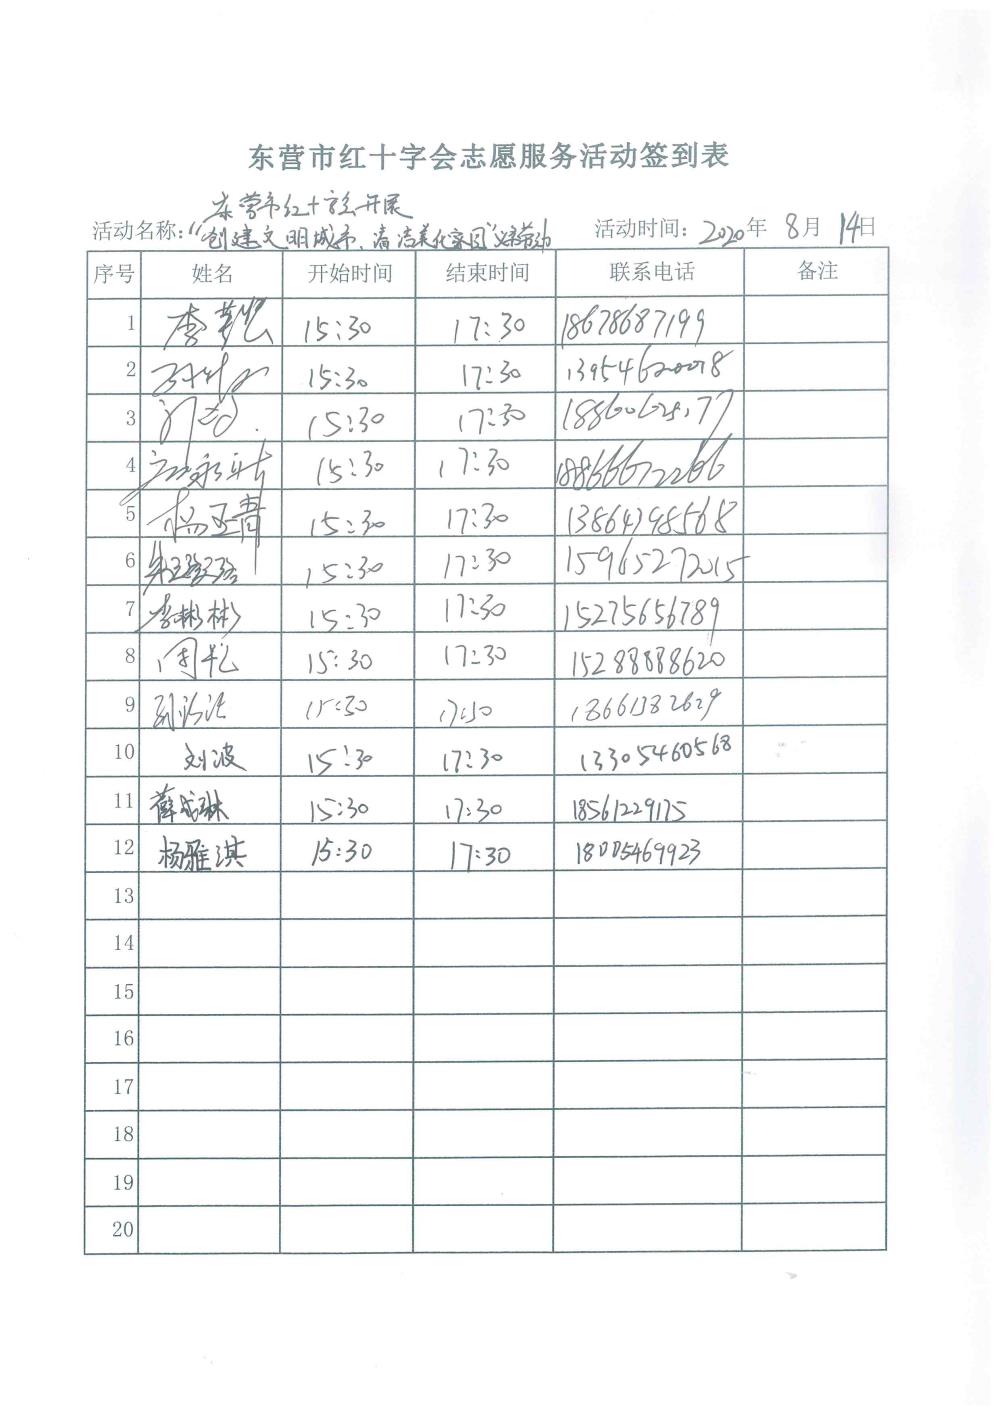 东营市红十字会志愿服务活动签到表
东营市红十字会开展
活动名称："创建文明城市、清洁美化家园"义务劳动 活动时间：2020年 8月 14日
序号 姓名 开始时间 结束时间 联系电话 备注
1 李 15:30 17:30 18678687199
2 15:30 17:30
3 15:30 17:30
4 15:30 17:30 18866672266
5 杨玉青 15:30 17:30 13864798568
6 15:30 17:30 15965272015
7 李彬彬 15:30 17:30 15275656789
8 周 15:30 17:30 15288888620
9 15:30 17:30
10 刘波 15:30 17:30 13305460568
11 薛成琳 15:30 17:30 18561229175
12 杨雅淇 15:30 17:30 18005469923
13
14
15
16
17
18
19
20